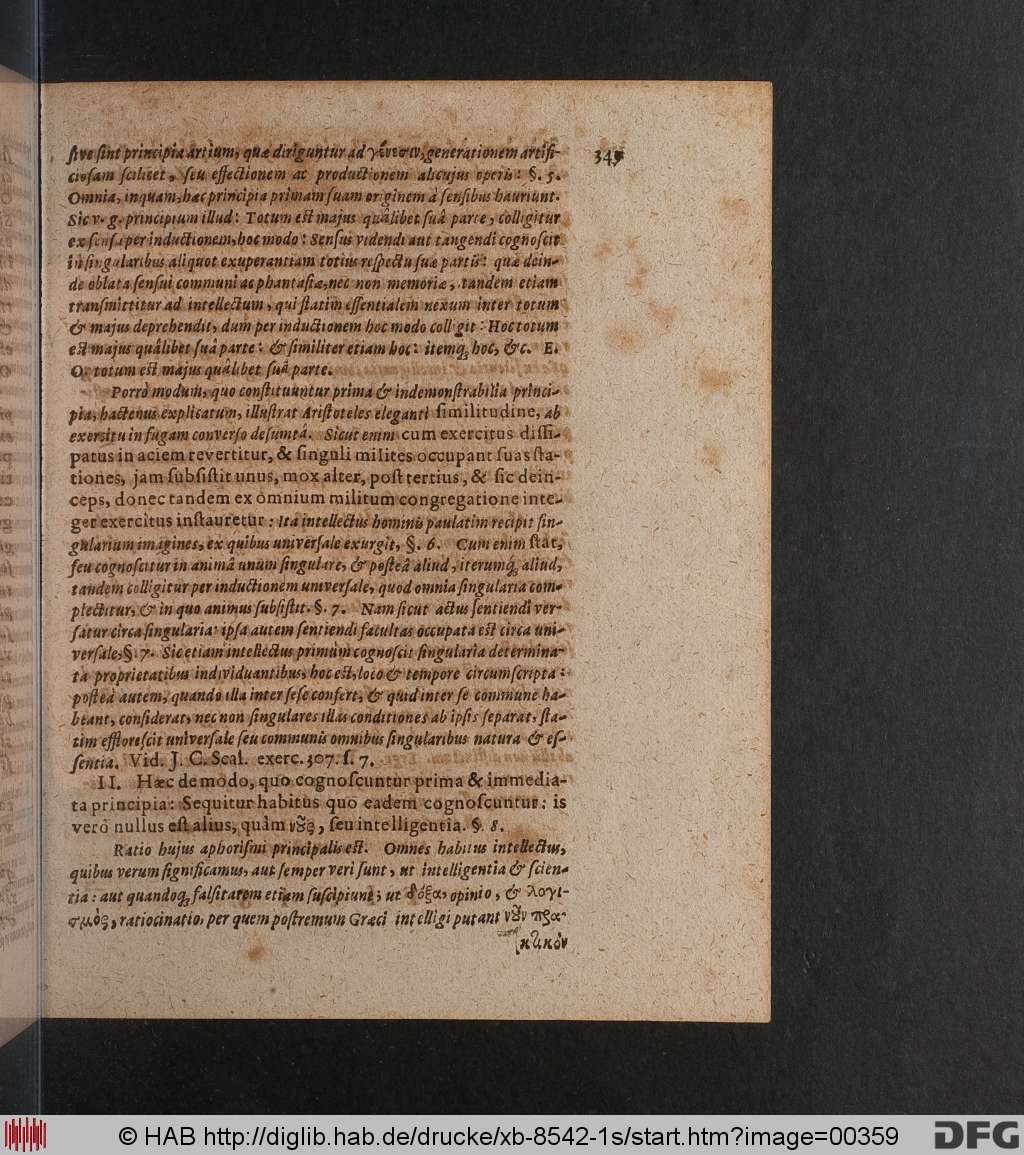 ſive ſint principia artium, quæ diriguntur ad γένεσιν, generationem artifi- 345
cioſam ſcilicet, ſeu effectionem ac productionem alicujus operis: §. 5.
Omnia, inquam, hæc principia primam ſuam originem à ſenſibus hauriunt.
Sic v. g. principium illud: Totum eſt majus quâlibet ſuâ parte, colligitur
ex ſenſu per inductionem, hoc modo: Senſus videndi aut tangendi cognoſcit
in ſingularibus aliquot exuperantiam totius reſpectu ſuæ partis: quæ dein-
de oblata ſenſui communi ac phantaſiæ, nec non memoriæ, tandem etiam
tranſmittitur ad intellectum, qui ſtatim eſſentialem nexum inter totum
& majus deprehendit, dum per inductionem hoc modo colligit: Hoc totum
eſt majus quâlibet ſuâ parte: & ſimiliter etiam hoc: itemq; hoc, &c. E.
O. totum eſt majus quâlibet ſuâ parte.
Porrò modum, quo conſtituuntur prima & indemonſtrabilia princi-
pia, hactenus explicatum, illuſtrat Ariſtoteles eleganti ſimilitudine, ab
exercitu in fugam converſo deſumtâ. Sicut enim cum exercitus diſſi-
patus in aciem revertitur, & ſinguli milites occupant ſuas ſta-
tiones, jam ſubſiſtit unus, mox alter, poſt tertius, & ſic dein-
ceps, donec tandem ex omnium militum congregatione inte-
ger exercitus inſtauretur: Ita intellectus hominis paulatim recipit ſin-
gularium imagines, ex quibus univerſale exurgit, §. 6. Cum enim ſtat,
ſeu cognoſcitur in animâ unum ſingulare, & poſteà aliud, iterumq; aliud,
tandem colligitur per inductionem univerſale, quod omnia ſingularia com-
plectitur, & in quo animus ſubſiſtit. §. 7. Nam ſicut actus ſentiendi ver-
ſatur circa ſingularia: ipſa autem ſentiendi facultas occupata eſt circa uni-
verſale, §. 7. Sic etiam intellectus primùm cognoſcit ſingularia determina-
ta proprietatibus individuantibus, hoc eſt, loco & tempore circumſcripta:
poſteà autem, quando illa inter ſeſe confert, & quid inter ſe commune ha-
beant, conſiderat, nec non ſingulares illas conditiones ab ipſis ſeparat, ſta-
tim effloreſcit univerſale ſeu communis omnibus ſingularibus natura & eſ-
ſentia. Vid. J. C. Scal. exerc. 307. ſ. 7.
II. Hæc de modo, quo cognoſcuntur prima & immedia-
ta principia: Sequitur habitus quo eadem cognoſcuntur: is
verò nullus eſt alius, quàm νȣ̃ς, ſeu intelligentia. §. 8.
Ratio hujus aphoriſmi principalis eſt. Omnes habitus intellectus,
quibus verum ſignificamus, aut ſemper veri ſunt, ut intelligentia & ſcien-
tia: aut quandoq; falſitatem etiam ſuſcipiunt; ut δόξα, opinio, & λογι-
σμὸς, ratiocinatio, per quem poſtremum Græci intelligi putant νȣ̃ν πρα-
κτικὸν
© HAB http://diglib.hab.de/drucke/xb-8542-1s/start.htm?image=00359 DFG